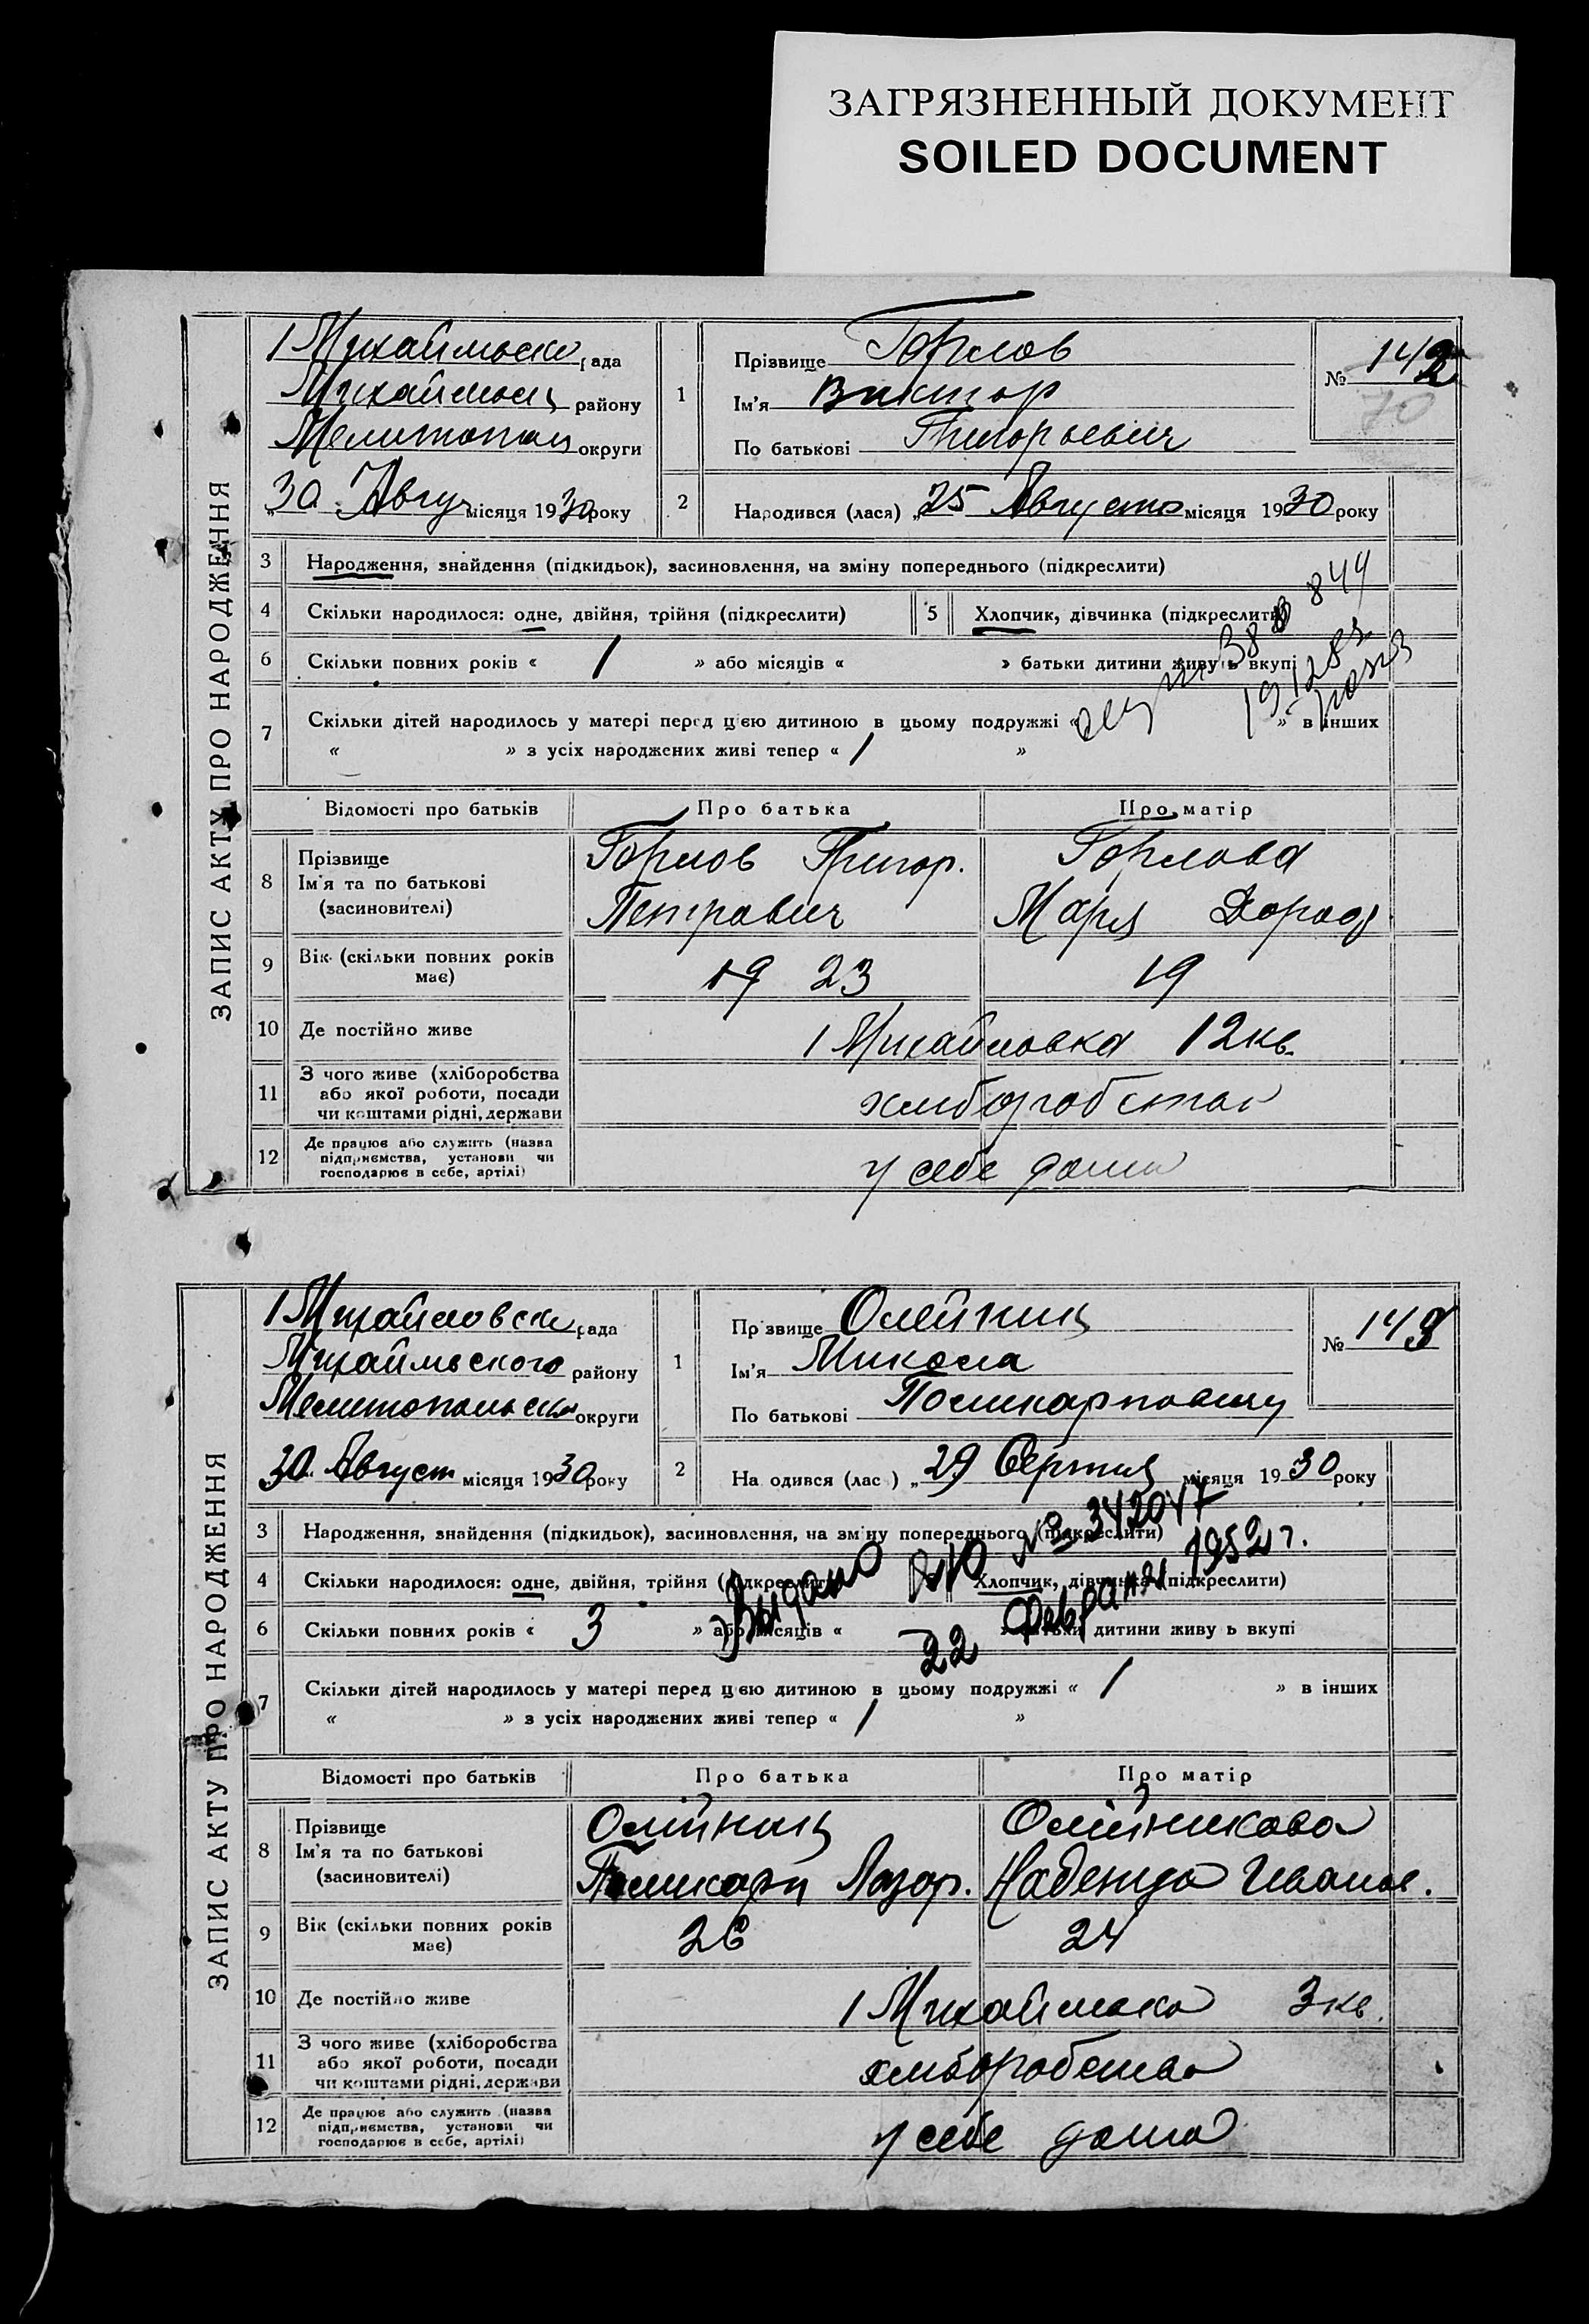 ЗАГРЯЗНЕННЫЙ ДОКУМЕНТ
SOILED DOCUMENT
ЗАПИС АКТУ ПРО НАРОДЖЕННЯ
1 Михайлівськ рада
Михайлівськ району
Мелитопол округи
"30 Авгу місяця 1930 року
1
Прізвище Горлов
Ім'я Виктор
По батькові Григорьевич
№ 142
70
2
Народився (лася) „25 Августа місяця 1930 року
3 Народження, знайдення (підкидьок), засиновлення, на зміну попереднього (підкреслити)
4 Скільки народилося: одне, двійня, трійня (підкреслити)
5 Хлопчик, дівчинка (підкреслити)
6 Скільки повних років « 1 » або місяців « » батьки дитини живуть вкупі
7 Скільки дітей народилось у матері перед цією дитиною в цьому подружжі « » в інших
« » з усіх народжених живі тепер « 1 »
844
Відомості про батьків Про батька Про матір
8 Прізвище
Ім'я та по батькові
(засиновителі)
Горлов Григор.
Петрович
Горлова
Мария
9 Вік (скільки повних років має)
19 23
19
10 Де постійно живе
1 Михайловка 12 кв.
11 З чого живе (хліборобства
або якої роботи, посади
чи коштами рідні, держави
хліборобство
12 Де працює або служить (назва
підприємства, установи чи
господарює в себе, артілі)
у себе дома
ЗАПИС АКТУ ПРО НАРОДЖЕННЯ
1 Михайловск рада
Михайлівського району
Мелитопольськ округи
„30 Август місяця 1930 року
1
Пр звище Олейник
Ім'я Микола
По батькові Поликарпович
№ 143
2
На одився (лас ) „29 Серпня місяця 1930 року
3 Народження, знайдення (підкидьок), засиновлення, на зм ну попереднього (підкреслити)
4 Скільки народилося: одне, двійня, трійня (підкреслити)
Хлопчик, дівчинка (підкреслити)
6 Скільки повних років « 3 » або місяців « батьки дитини живу ь вкупі
Выдано ЯЮ № 342047
22 Февраля 1952 г.
7 Скільки дітей народилось у матері перед цією дитиною в цьому подружжі « 1 » в інших
« » з усіх народжених живі тепер « 1 »
Відомості про батьків Про батька Про матір
8 Прізвище
Ім'я та по батькові
(засиновителі)
Олійник
Поликарп Лазор.
Олійникова
Надежда Иванов.
9 Вік (скільки повних років має)
26
24
10 Де постійно живе
1 Михайлівка 3 кв.
11 З чого живе (хліборобства
або якої роботи, посади
чи коштами рідні, держави
хліборобства
12 Де працює або служить (назва
підприємства, установи чи
господарює в себе, артілі)
у себе дома